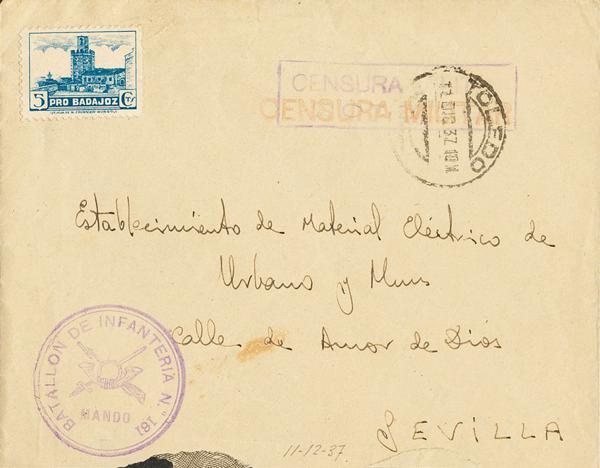 5 PRO BADAJOZ Cts
CENSURA
CENSURA MILITAR
TOLEDO
12 DIC 37 10M
Establecimiento de Material Eléctrico de
Urbano y Muns
Calle de Amor de Dios
SEVILLA
BATALLON DE INFANTERIA N.º 191
MANDO
11-12-37.